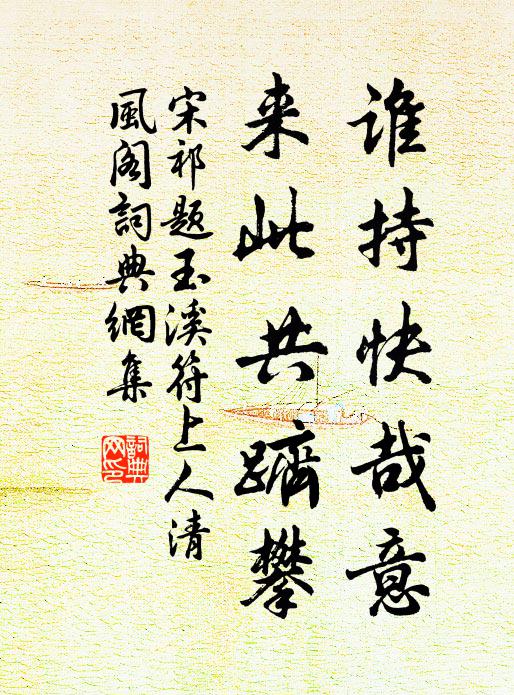 谁持快哉意
来此共躋攀
宋祁题玉溪符上人清
風阁詞典網集
詞典
网印